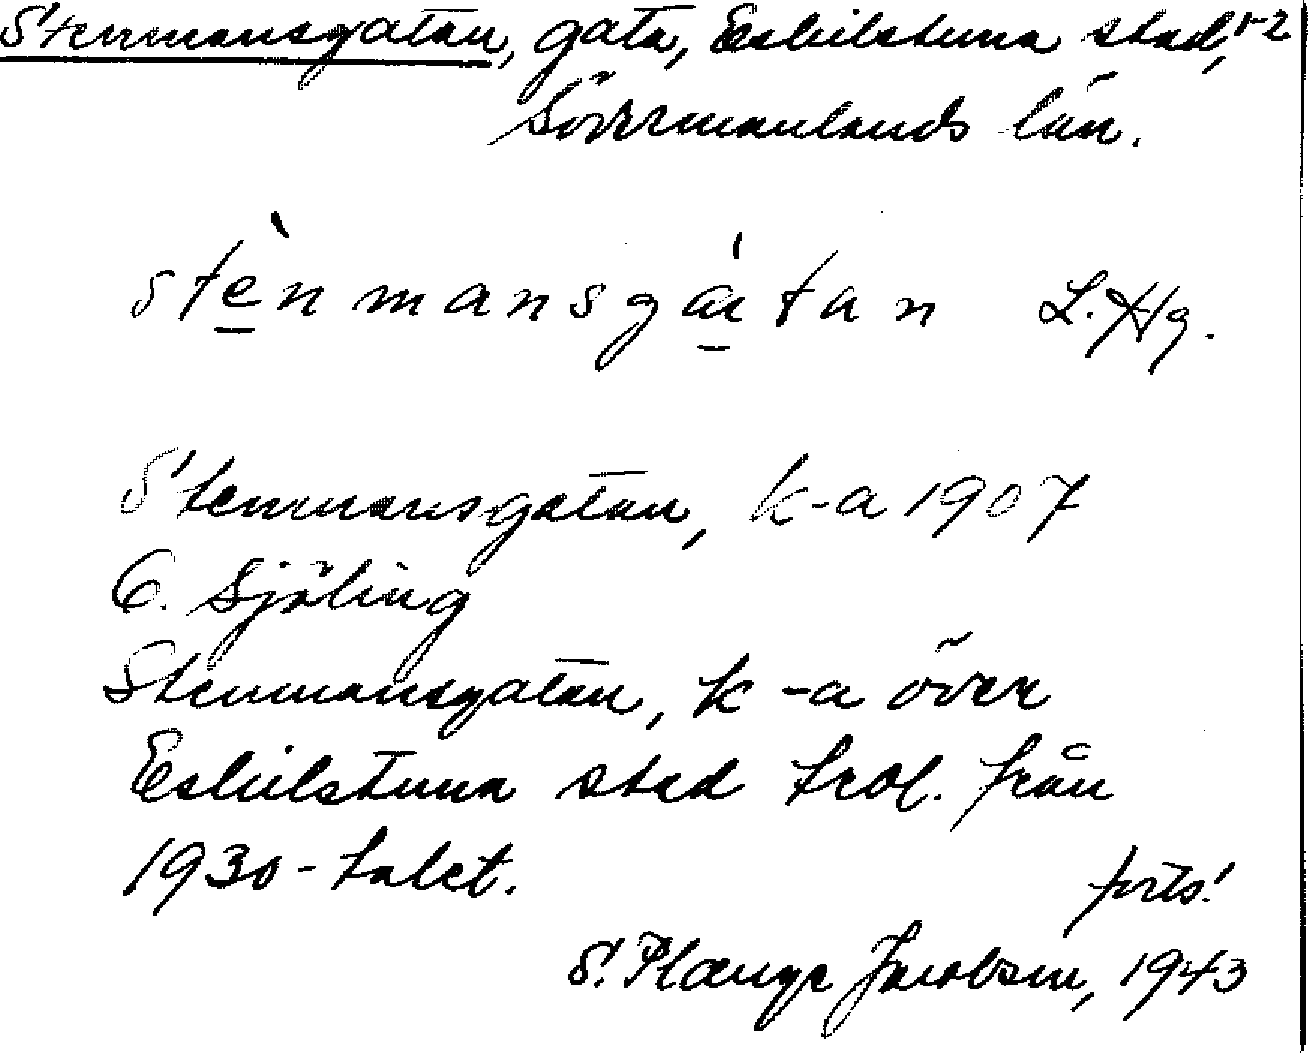 Stenmansgatan, gata, Eskilstuna stad, 1-2
Södermanlands län.
stènmansgátan L. Hg.
Stenmansgatan, k-a 1907
C. Sjöling
Stenmansgatan, k-a över
Eskilstuna stad trol. från
1930-talet.
forts!
S. Plænge Jacobson, 1943